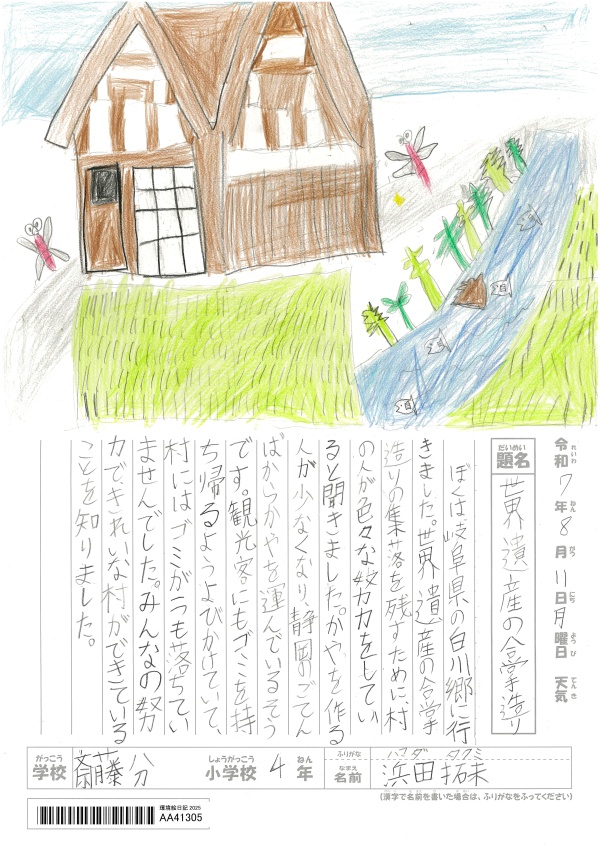 れいわ ねん がつ にち ようび てんき
令和7年8月11日月曜日 天気
だいめい
題名 世界遺産の合掌造り
ぼくは岐阜県の白川郷に行
きました。世界遺産の合掌
造りの集落を残すために、村
の人が色々な努力をしてい
ると聞きました。かやを作る
人が少なくなり、静岡のごてん
ばからかやを運んでいるそう
です。観光客にもゴミを持
ち帰るようよびかけていて、
村にはゴミが一つも落ちてい
ませんでした。みんなの努
力できれいな村ができている
ことを知りました。
がっこう しょうがっこう ねん ふりがな ハマダ タクミ
学校 斎藤分 小学校 4年 なまえ 名前 浜田拓未
(漢字で名前を書いた場合は、ふりがなをふってください)
環境絵日記 2025
AA41305